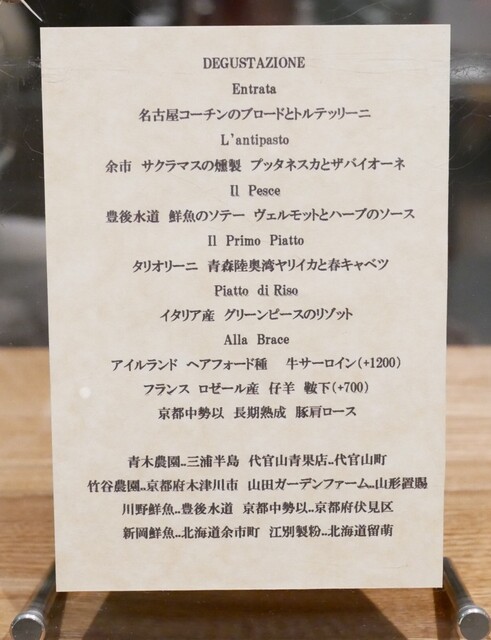 DEGUSTAZIONE
Entrata
名古屋コーチンのブロードとトルテッリーニ
L'antipasto
余市 サクラマスの燻製 プッタネスカとザバイオーネ
Il Pesce
豊後水道 鮮魚のソテー ヴェルモットとハーブのソース
Il Primo Piatto
タリオリーニ 青森陸奥湾ヤリイカと春キャベツ
Piatto di Riso
イタリア産 グリーンピースのリゾット
Alla Brace
アイルランド ヘアフォード種 牛サーロイン(+1200)
フランス ロゼール産 仔羊 鞍下(+700)
京都中勢以 長期熟成 豚肩ロース
青木農園..三浦半島 代官山青果店..代官山町
竹谷農園..京都府木津川市 山田ガーデンファーム..山形置賜
川野鮮魚..豊後水道 京都中勢以..京都府伏見区
新岡鮮魚..北海道余市町 江別製粉..北海道留萌